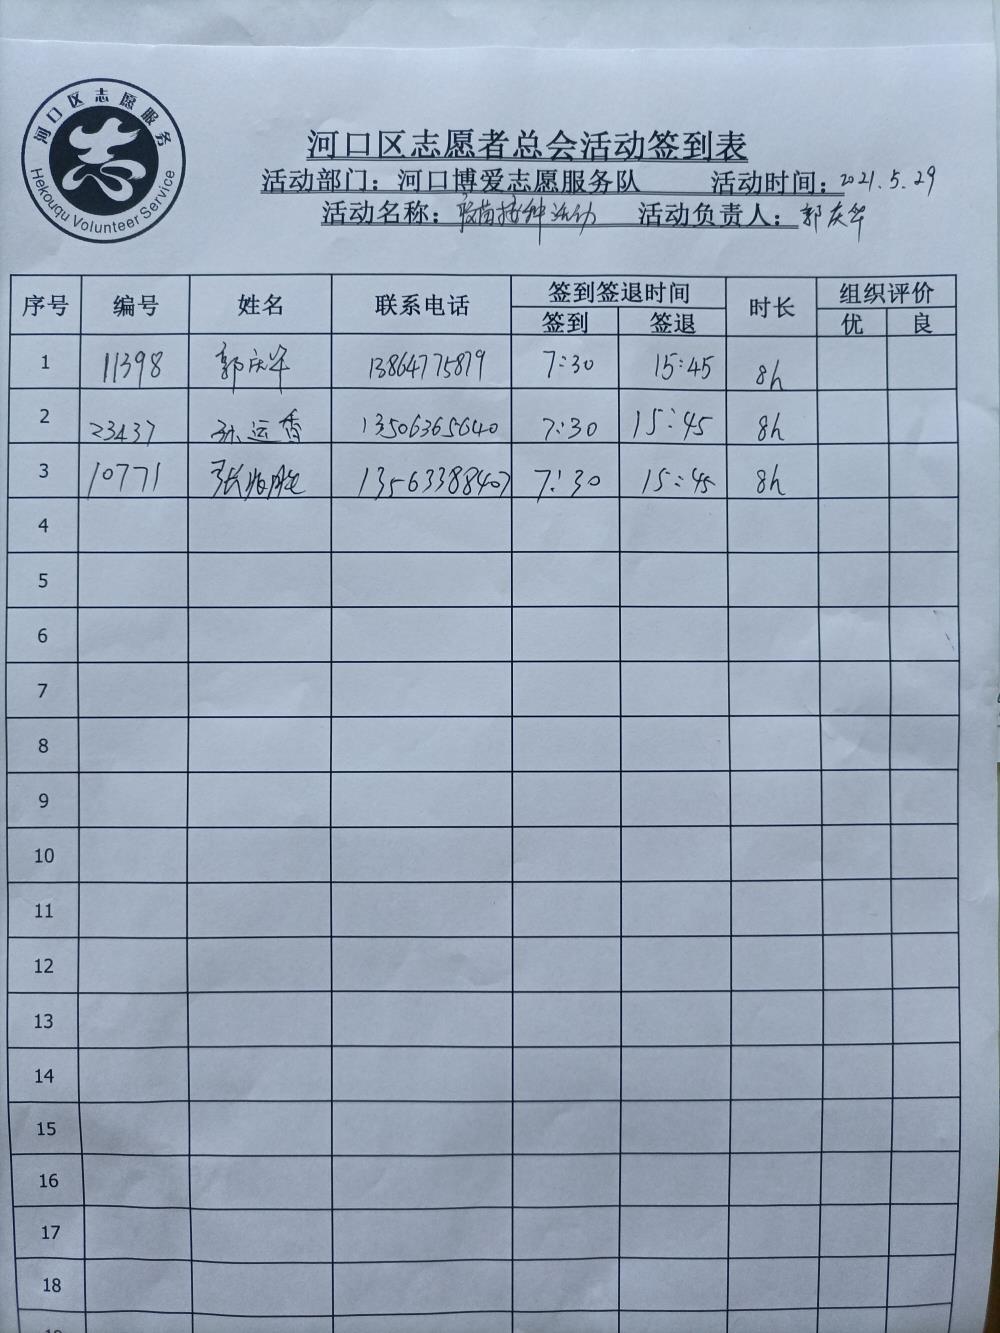 河口区志愿服务
Hekouqu Volunteer Service
河口区志愿者总会活动签到表
活动部门：河口博爱志愿服务队 活动时间：2021.5.29
活动名称：疫苗接种活动 活动负责人：郭庆华
序号 编号 姓名 联系电话 签到签退时间 时长 组织评价
签到 签退 优 良
1 11398 郭庆华 13864775879 7:30 15:45 8h
2 23437 孙运香 13506365640 7:30 15:45 8h
3 10771 张 13563388407 7:30 15:45 8h
4
5
6
7
8
9
10
11
12
13
14
15
16
17
18